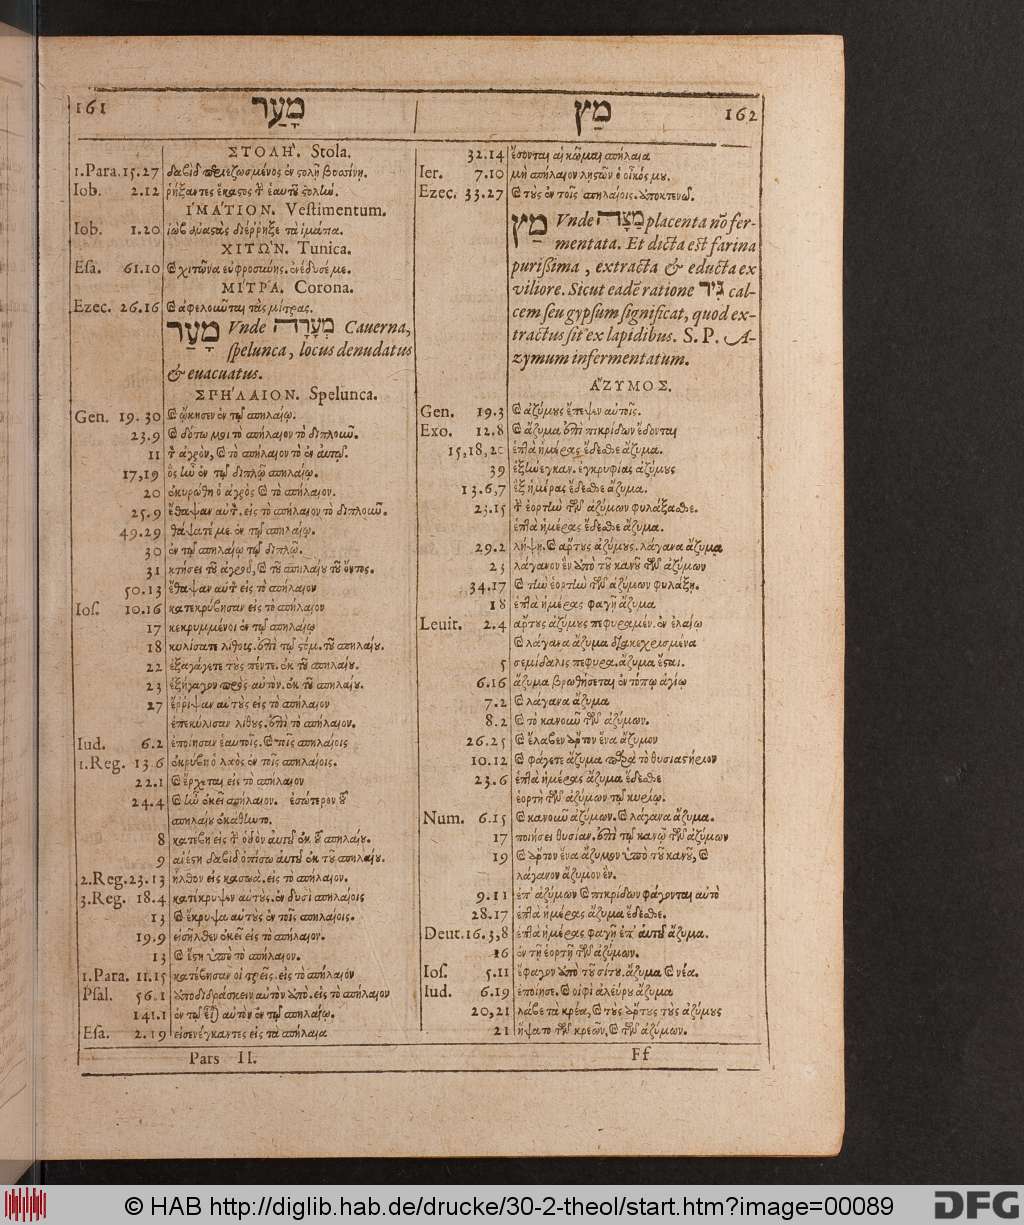 161 מָעַר
ΣΤΟΛΗ'. Stola.
1.Para. 15.27 δαβὶδ περιεζωσμένος ἐν στολῇ βυσσίνῃ.
Iob. 2.12 ῥήξαντες ἕκαστος τ̀ ἑαυτῶ στολὼ.
ἹΜΆΤΙΟΝ. Vestimentum.
Iob. 1.20 ἰὼβ ἀναστὰς διέῤῥηξε τὰ ἱμάτια.
ΧΙΤΩ'Ν. Tunica.
Esa. 61.10 Ϗ χιτῶνα εὐφροσύνης. ἐνέδυσέ με.
ΜΙ'ΤΡΑ. Corona.
Ezec. 26.16 Ϗ ἀφελοιῶται τὰς μίτρας.
מָעַר Vnde מְעָרָה Cauerna,
spelunca, locus denudatus
& euacuatus.
ΣΠΗ'ΛΑΙΟΝ. Spelunca.
Gen. 19.30 Ϗ ᾤκησεν ἐν τῷ σπηλαίῳ.
23.9 Ϗ δότω μοι τὸ σπήλαιον τὸ διπλοιῶ.
11 τ̀ ἀγρὸν, Ϗ τὸ σπήλαιον τὸ ἐν αὐτῷ.
17,19 ὃς ἰῶ ἐν τῷ διπλῷ σπηλαίῳ.
20 ἐκυρώθη ὁ ἀγρὸς Ϗ τὸ σπήλαιον.
25.9 ἔθαψαν αὐτ̀. εἰς τὸ σπήλαιον τὸ διπλοιῶ.
49.29 θάψατέ με. ἐν τῷ σπηλαίῳ.
30 ἐν τῷ σπηλαίῳ τῷ διπλῷ.
31 κτήσει τοῦ ἀγροῦ, Ϗ τοῦ σπηλαίου τοῦ ὄντος.
50.13 ἔθαψαν αὐτ̀ εἰς τὸ σπήλαιον
Ios. 10.16 κατεκρύβησαν εἰς τὸ σπήλαιον
17 κεκρυμμένοι ἐν τῷ σπηλαίῳ
18 κυλίσατε λίθους. ἐπὶ τῷ στόμ. τοῦ σπηλαίου.
22 ἐξαγάγετε τοὺς πέντε. ἐκ τοῦ σπηλαίου.
23 ἐξήγαγον πρὸς αὐτὸν. ἐκ τοῦ σπηλαίου.
27 ἔῤῥιψαν αὐτοὺς εἰς τὸ σπήλαιον
ἐπεκύλισαν λίθους. ἐπὶ τὸ σπήλαιον.
Iud. 6.2 ἐποίησαν ἑαυτοῖς. Ϗ τοῖς σπηλαίοις
1.Reg. 13 6 ἐκρύβη ὁ λαὸς ἐν τοῖς σπηλαίοις.
22.1 Ϗ ἔρχεται εἰς τὸ σπήλαιον
24.4 Ϗ ἰῶ ἐκεῖ σπήλαιον. ἐσώτερον τοῦ
σπηλαίου ἐκάθιωτο.
8 κατέβη εἰς τ̀ ὁδὸν αὐτοῦ ἐκ τοῦ σπηλαίου.
9 ἀνέστη δαβὶδ ὀπίσω αὐτοῦ ἐκ τοῦ σπηλαίου.
2.Reg. 23.13 ἦλθον εἰς κασωὰ. εἰς τὸ σπήλαιον.
3.Reg. 18.4 κατέκρυψεν αὐτοὺς. ἐν δυσὶ σπηλαίοις
13 Ϗ ἔκρυψα αὐτοὺς ἐν τοῖς σπηλαίοις.
19.9 εἰσῆλθεν ἐκεῖ εἰς τὸ σπήλαιον.
13 Ϗ ἔστη ὑπὸ τὸ σπήλαιον.
1.Para. 11.15 κατέβησαν οἱ τρεῖς. εἰς τὸ σπήλαιον
Psal. 56.1 ἀποδιδράσκειν αὐτὸν ἀπὸ. εἰς τὸ σπήλαιον
141.1 ἐν τῷ εἶναι αὐτὸν ἐν τῷ σπηλαίῳ.
Esa. 2.19 εἰσενέγκαντες εἰς τὰ σπήλαια
Pars II.
מַץ 162
32.14 ἔσονται αἱ κῶμαι σπήλαια
Ier. 7.10 μὴ σπήλαιον λῃστῶν ὁ οἶκός μου.
Ezec. 33.27 Ϗ τοὺς ἐν τοῖς σπηλαίοις. ἀποκτενῶ.
מַץ Vnde מַצָּה placenta nō fer-
mentata. Et dicta est farina
purissima, extracta & educta ex
viliore. Sicut eadē ratione גִּיר cal-
cem seu gypsum significat, quod ex-
tractus sit ex lapidibus. S. P. A-
zymum infermentatum.
ἌΖΥΜΟΣ.
Gen. 19.3 Ϗ ἀζύμους ἔπεψεν αὐτοῖς.
Exo. 12.8 Ϗ ἄζυμα ἐπὶ πικρίδων ἔδονται
15,18,20 ἑπτὰ ἡμέρας ἔδεσθε ἄζυμα.
39 ἐξιώεγκαν. ἐγκρυφίας ἀζύμους
13.6,7 ἓξ ἡμέρας ἔδεσθε ἄζυμα.
23.15 τ̀ ἑορτιὼ τῶν ἀζύμων φυλάξασθε.
ἑπτὰ ἡμέρας ἔδεσθε ἄζυμα.
29.2 λήψῃ. Ϗ ἄρτους ἀζύμους. λάγανα ἄζυμα
23 λάγανον ἓν ἀπὸ τοῦ κανοῦ τῶν ἀζύμων
34.17 Ϗ τιὼ ἑορτιὼ τῶν ἀζύμων φυλάξῃ.
18 ἑπτὰ ἡμέρας φαγῇ ἄζυμα
Leuit. 2.4 ἄρτους ἀζύμους πεφυραμέν. ἐν ἐλαίῳ
Ϗ λάγανα ἄζυμα διακεχρισμένα
5 σεμίδαλις πεφυρα. ἄζυμα ἔσται.
6.16 ἄζυμα βρωθήσεται ἐν τόπῳ ἁγίῳ
7.2 Ϗ λάγανα ἄζυμα
8.2 Ϗ τὸ κανοιῶ τῶν ἀζύμων.
26.25 Ϗ ἔλαβεν ἄρτον ἕνα ἄζυμον
10.12 Ϗ φάγετε ἄζυμα παρὰ τὸ θυσιαστήριον
23.6 ἑπτὰ ἡμέρας ἄζυμα ἔδεσθε
ἑορτὴ τῶν ἀζύμων τῷ κυρίῳ.
Num. 6.15 Ϗ κανοιῶ ἀζύμων. Ϗ λάγανα ἄζυμα.
17 ποιήσει θυσίαν. ἐπὶ τῷ κανῷ τῶν ἀζύμων
19 Ϗ ἄρτον ἕνα ἄζυμον ἀπὸ τοῦ κανοῦ, Ϗ
λάγανον ἄζυμον ἓν.
9.11 ἐπ' ἀζύμων Ϗ πικρίδων φάγονται αὐτὸ
28.17 ἑπτὰ ἡμέρας ἄζυμα ἔδεσθε.
Deut. 16.3,8 ἑπτὰ ἡμέρας φαγῇ ἐπ' αὐτοῦ ἄζυμα.
16 ἐν τῇ ἑορτῇ τῶν ἀζύμων.
Ios. 5.11 ἔφαγον ἀπὸ τοῦ σίτου. ἄζυμα Ϗ νέα.
Iud. 6.19 ἐποίησε. Ϗ οἰφὶ ἀλεύρου ἄζυμα
20,21 λάβε τὰ κρέα, Ϗ τοὺς ἄρτους τοὺς ἀζύμους
21 ἥψατο τῶν κρεῶν, Ϗ τῶν ἀζύμων.
Ff
© HAB http://diglib.hab.de/drucke/30-2-theol/start.htm?image=00089
DFG